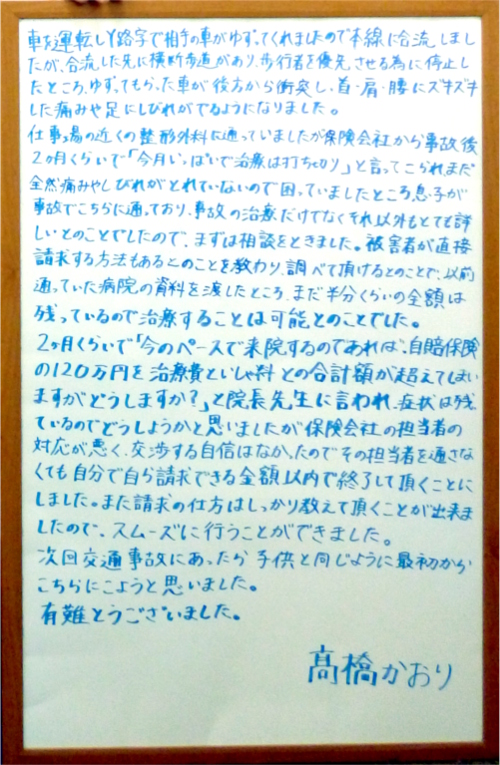 車を運転しY路字で相手の車がゆずってくれましたので本線に合流しまし
たが、合流した先に横断歩道があり、歩行者を優先させる為に停止し
たところ、ゆずってもらった車が後方から衝突し、首・肩・腰にズキズキ
した痛みや足にしびれがでるようになりました。
仕事場の近くの整形外科に通っていましたが保険会社から事故後
2ヶ月くらいで「今月いっぱいで治療は打ち切り」と言ってこられまだ
全然痛みやしびれがとれていないので困っていましたところ、息子が
事故でこちらに通っており、事故の治療だけでなくそれ以外もとても詳
しいとのことでしたので、まずは相談をときました。被害者が直接
請求する方法もあるとのことを教わり、調べて頂けるとのことで、以前
通っていた病院の資料を渡したところ、まだ半分くらいの金額は
残っているので治療することは可能とのことでした。
2ヶ月くらいで「今のペースで来院するのであれば、自賠保険
の120万円を治療費といしゃ料との合計額が超えてしまい
ますがどうしますか?」と院長先生に言われ、症状は残っ
ているのでどうしようかと思いましたが保険会社の担当者の
対応が悪く、交渉する自信はなかったのでその担当者を通さな
くても自分で自ら請求できる金額以内で終了して頂くことに
しました。また請求の仕方はしっかり教えて頂くことが出来ま
したので、スムーズに行うことができました。
次回交通事故にあったら子供と同じように最初から
こちらにこようと思いました。
有難とうございました。
髙橋かおり